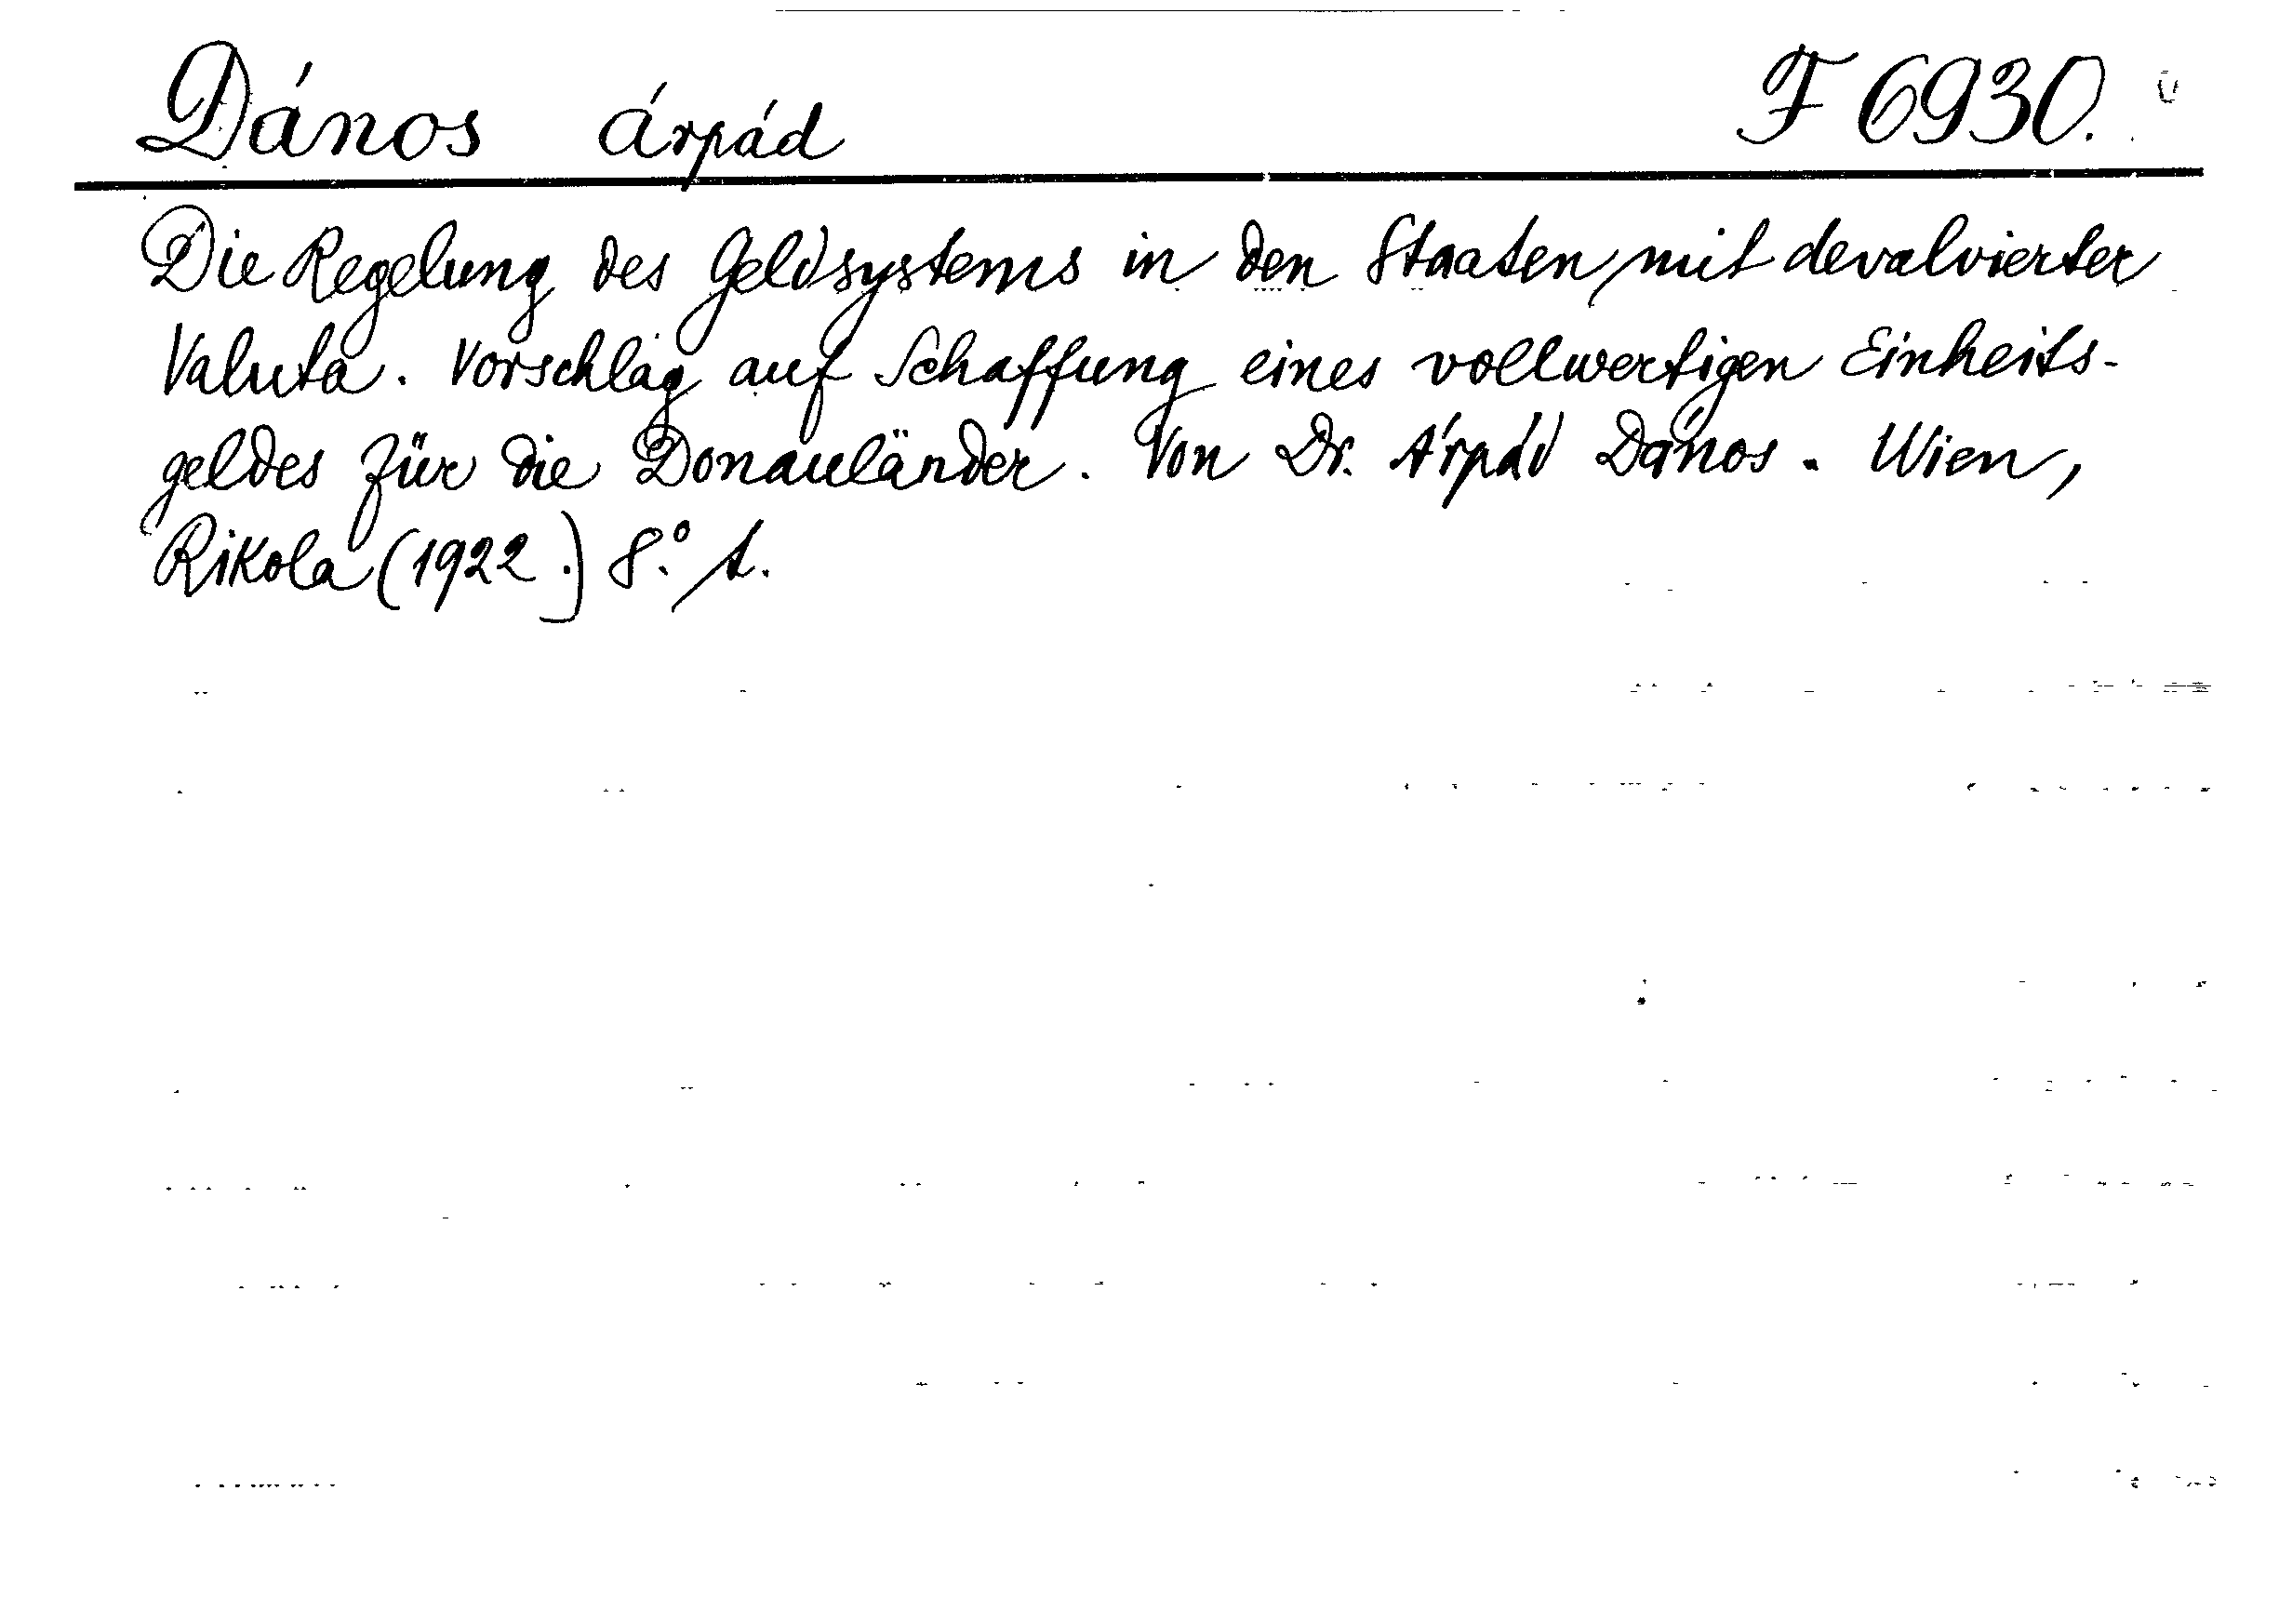 Dános Árpád F 6930.
Die Regelung des Geldsystems in den Staaten mit devalvierter
Valuta. Vorschlag auf Schaffung eines vollwertigen Einheits-
geldes für die Donauländer. Von Dr. Árpád Dános. Wien,
Rikola (1922.) 8.° 1.